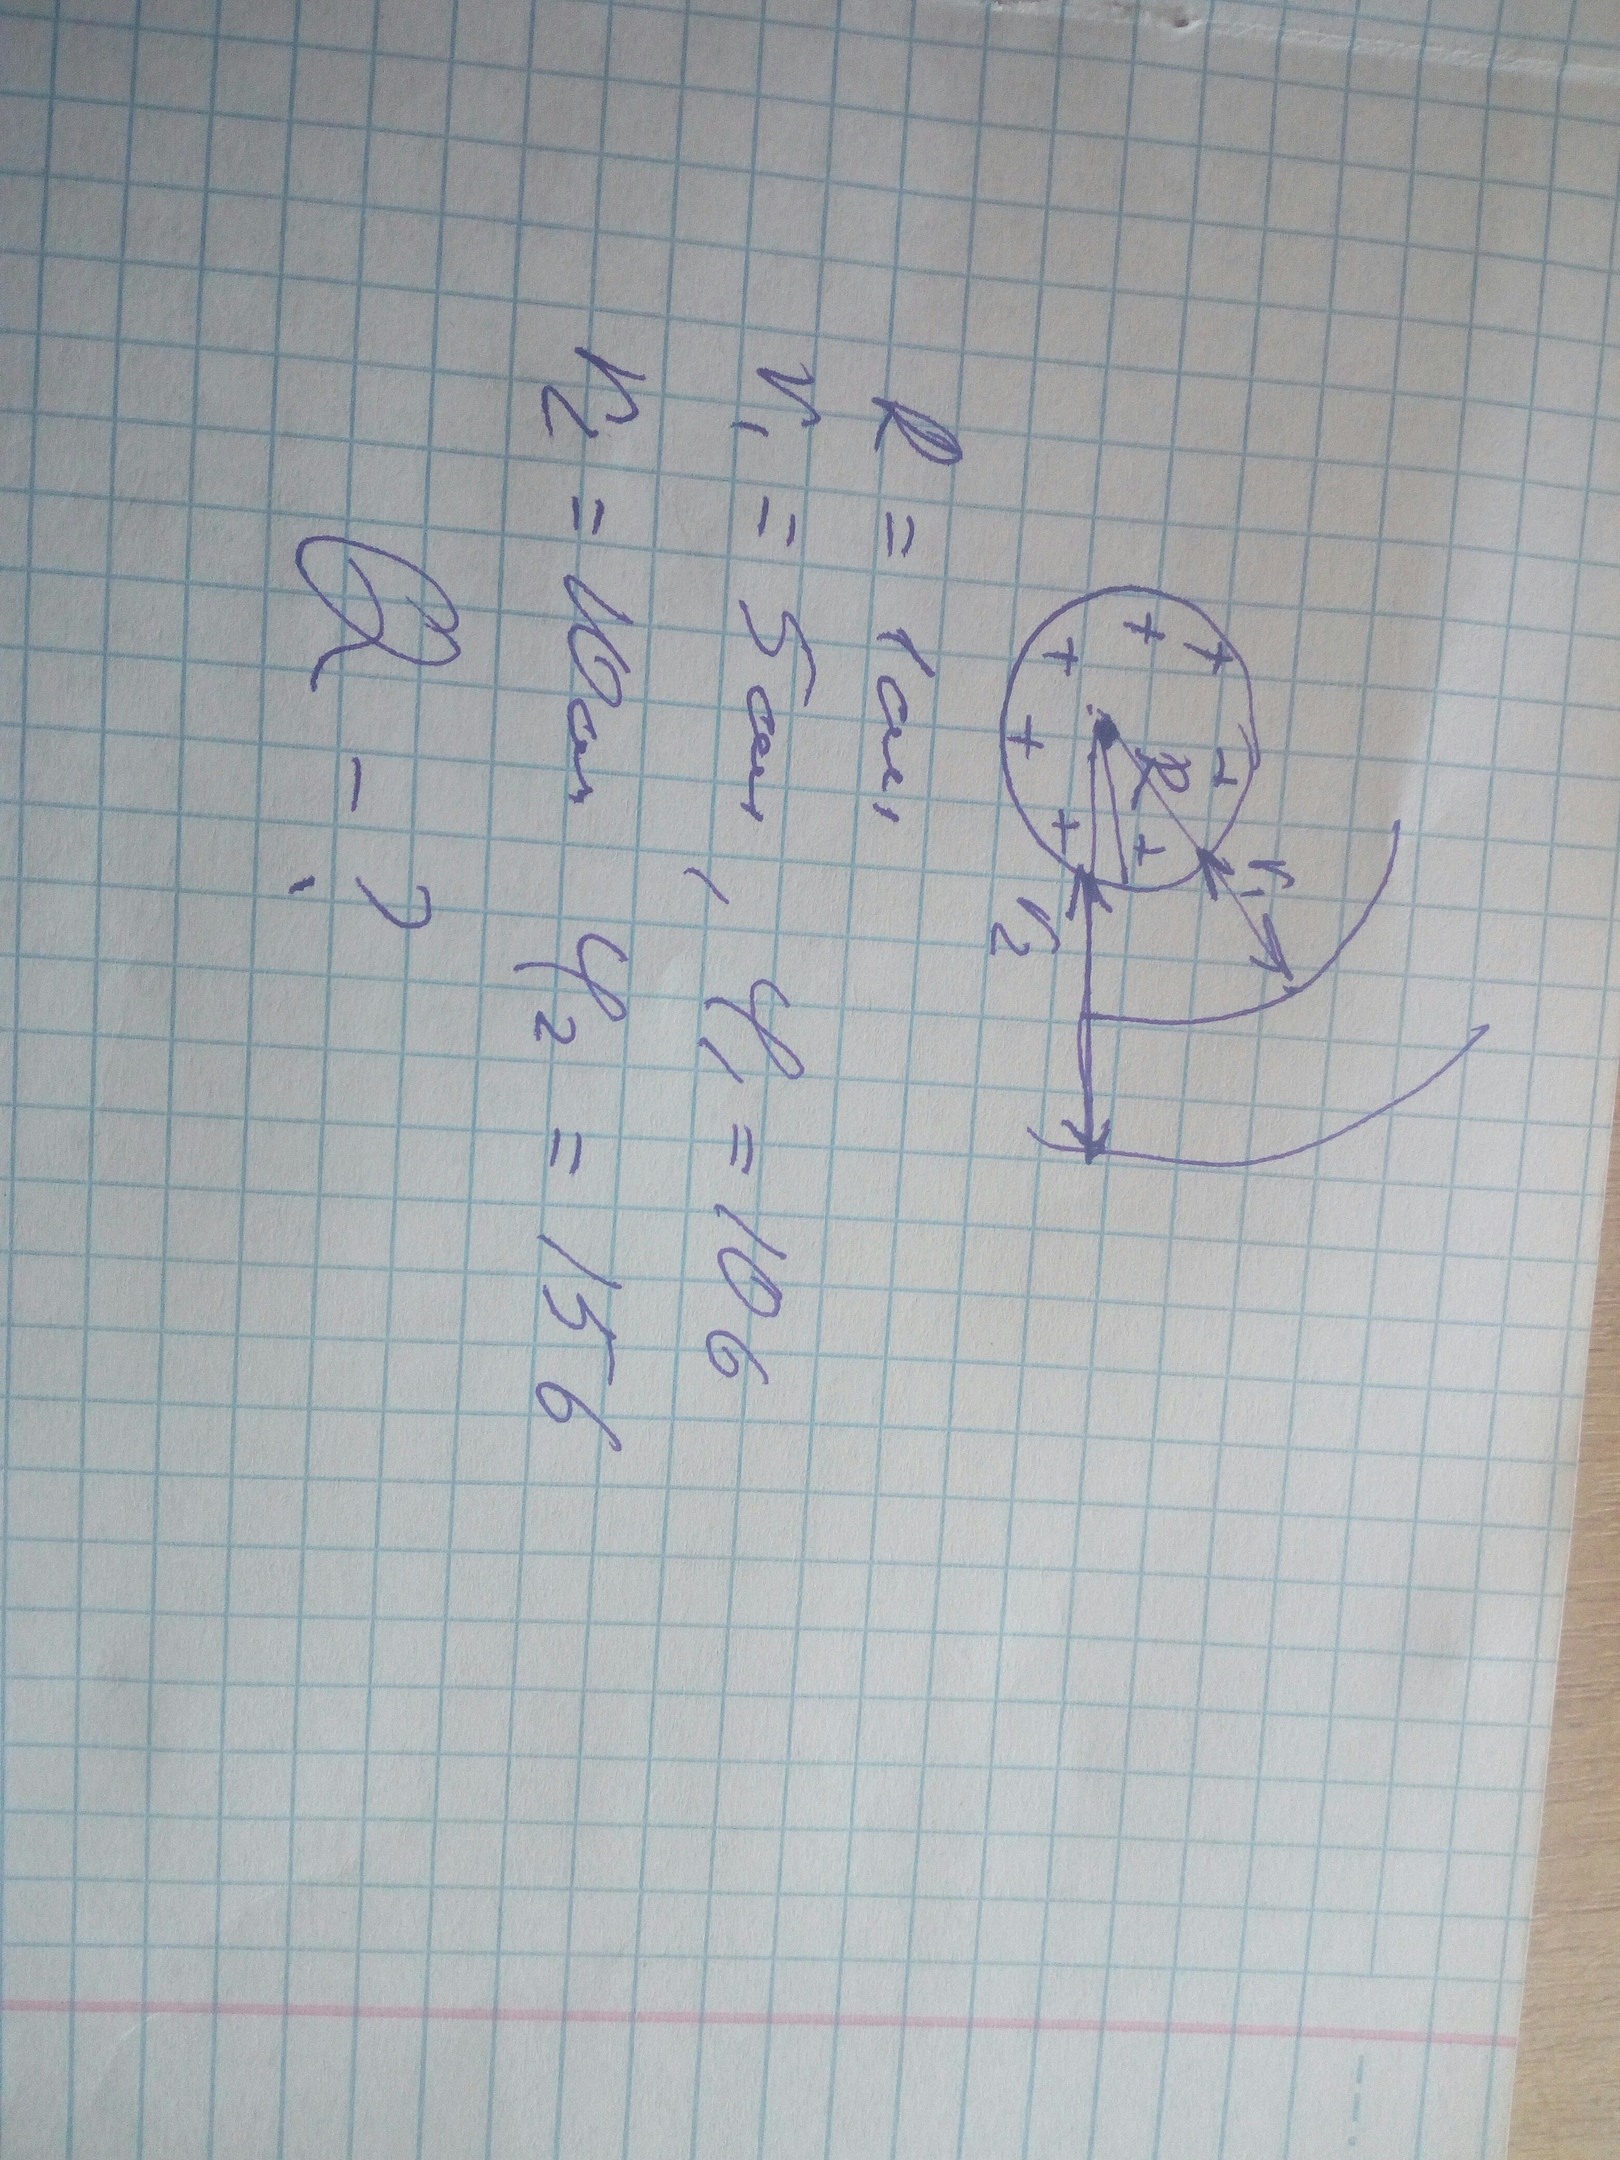 r₁
R
+ + + + + + +
r₂
R = 1 см
r₁ = 5 см, φ₁ = 10 в
r₂ = 10 см φ₂ = 15 в
Q - ?